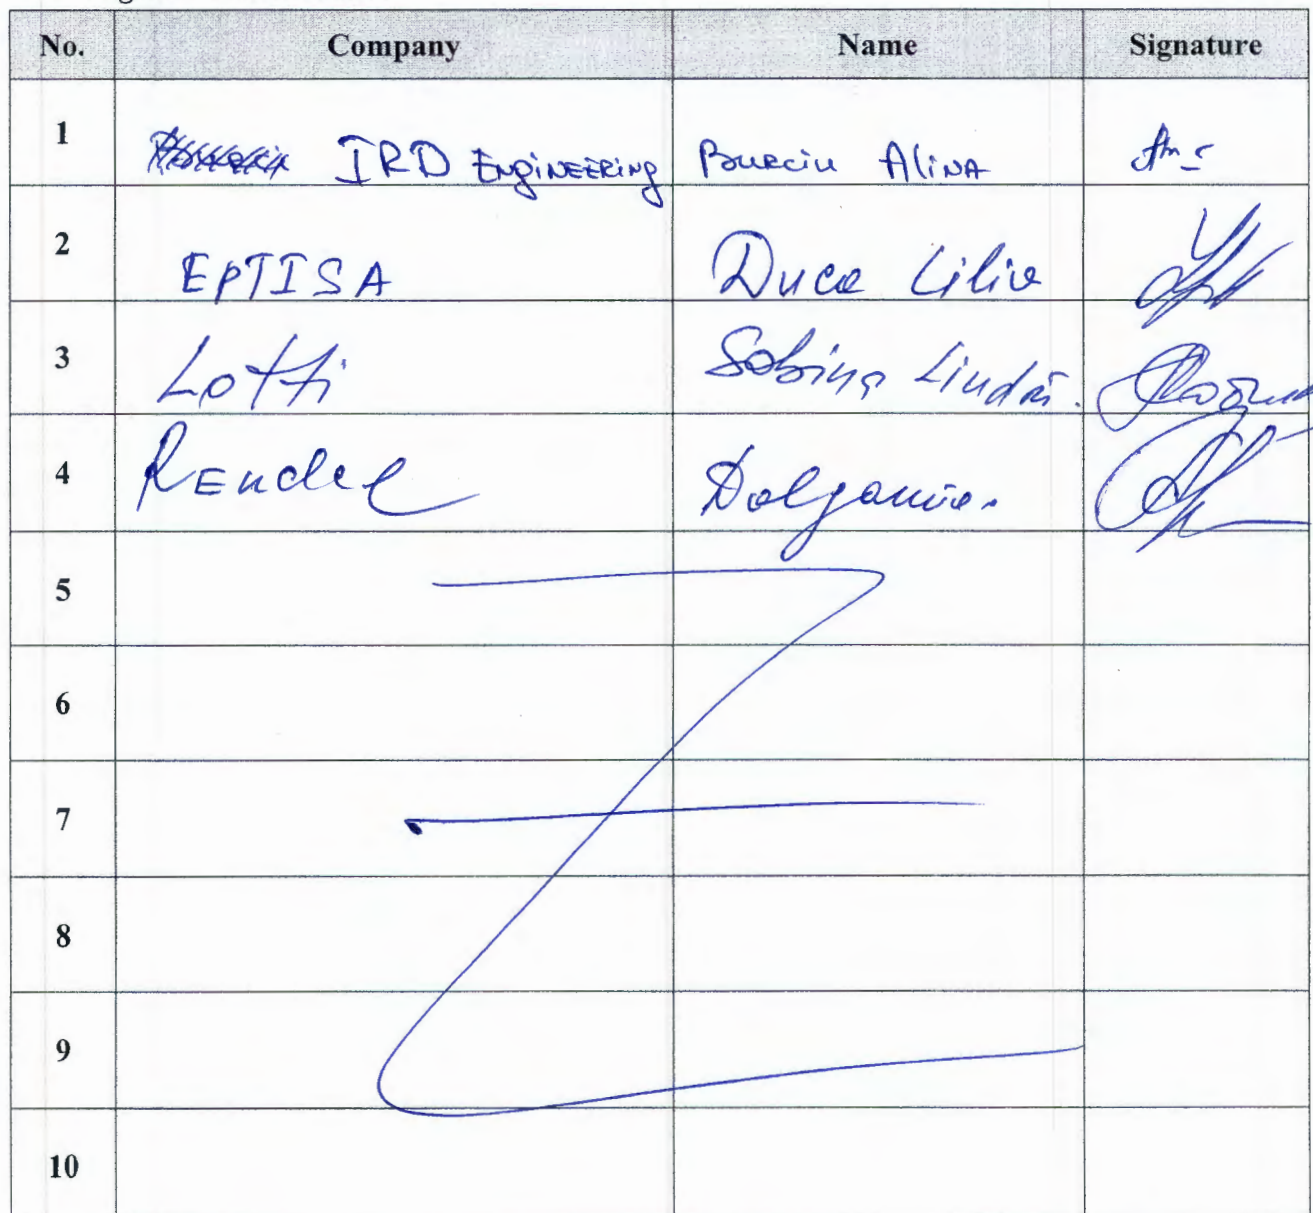 No. Company Name Signature
1 IRD Engineering Burciu Alina
2 EPTISA Duca Lilia
3 Lotti Sabina
4 Rendel
5
6
7
8
9
10